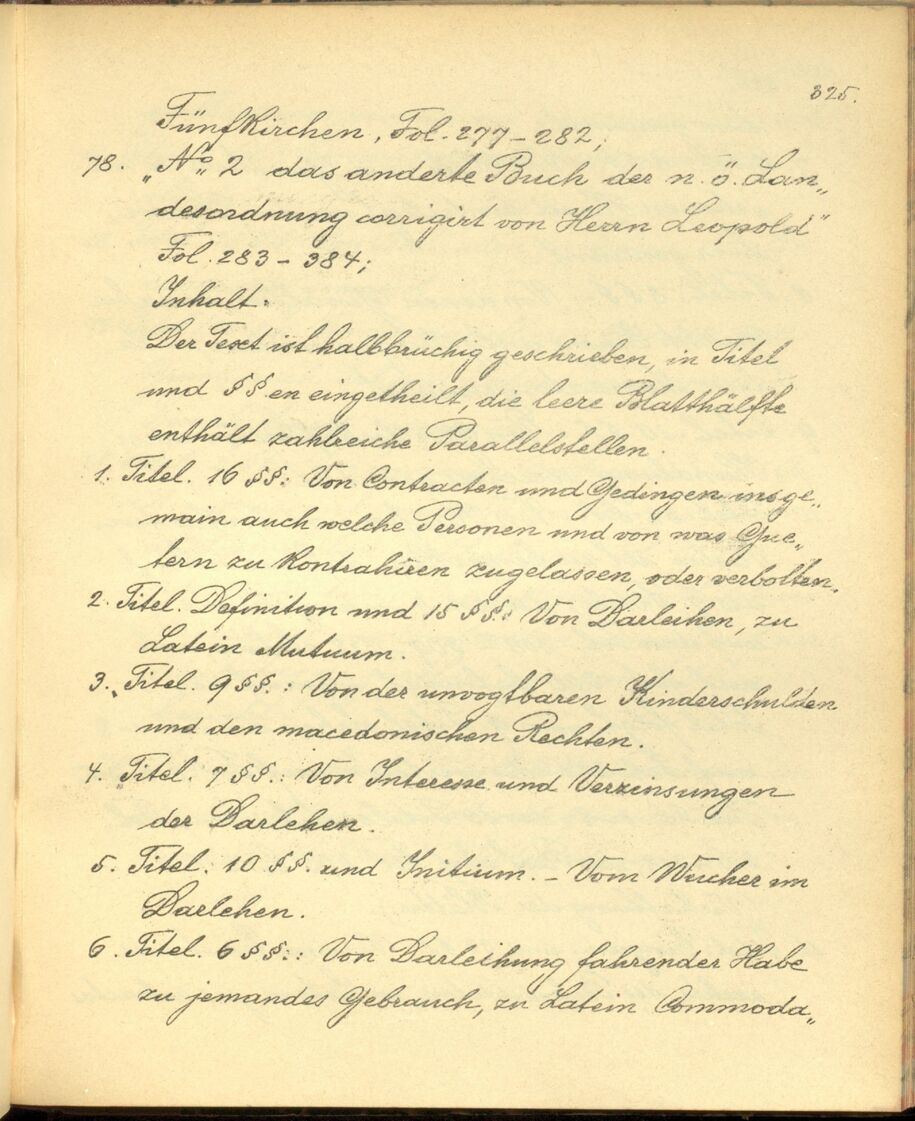 325.
Fünfkirchen, Fol. 277 – 282;
78. „No 2 das anderte Buch der n. ö. Lan„
desordnung corrigirt von Herrn Leopold"
Fol. 283 – 384;
Inhalt:
Der Text ist halbbrüchig geschrieben, in Titel
und §§en eingetheilt, die leere Blatthälfte
enthält zahlreiche Parallelstellen.
1. Titel. 16 §§: Von Contracten und Gedingen insge„
main auch welche Personen und von was Gue„
tern zu kontrahiren zugelassen, oder verbotten.
2. Titel. Definition und 15 §§: Von Darleihen, zu
Latein Mutuum.
3. Titel. 9 §§.: Von der unvogtbaren Kinderschulden
und den macedonischen Rechten.
4. Titel. 7 §§.: Von Interesse und Verzinsungen
der Darlehen.
5. Titel. 10 §§. und Initium. – Vom Wucher im
Darlehen.
6. Titel. 6 §§.: Von Darleihung fahrender Habe
zu jemandes Gebrauch, zu Latein Commoda„